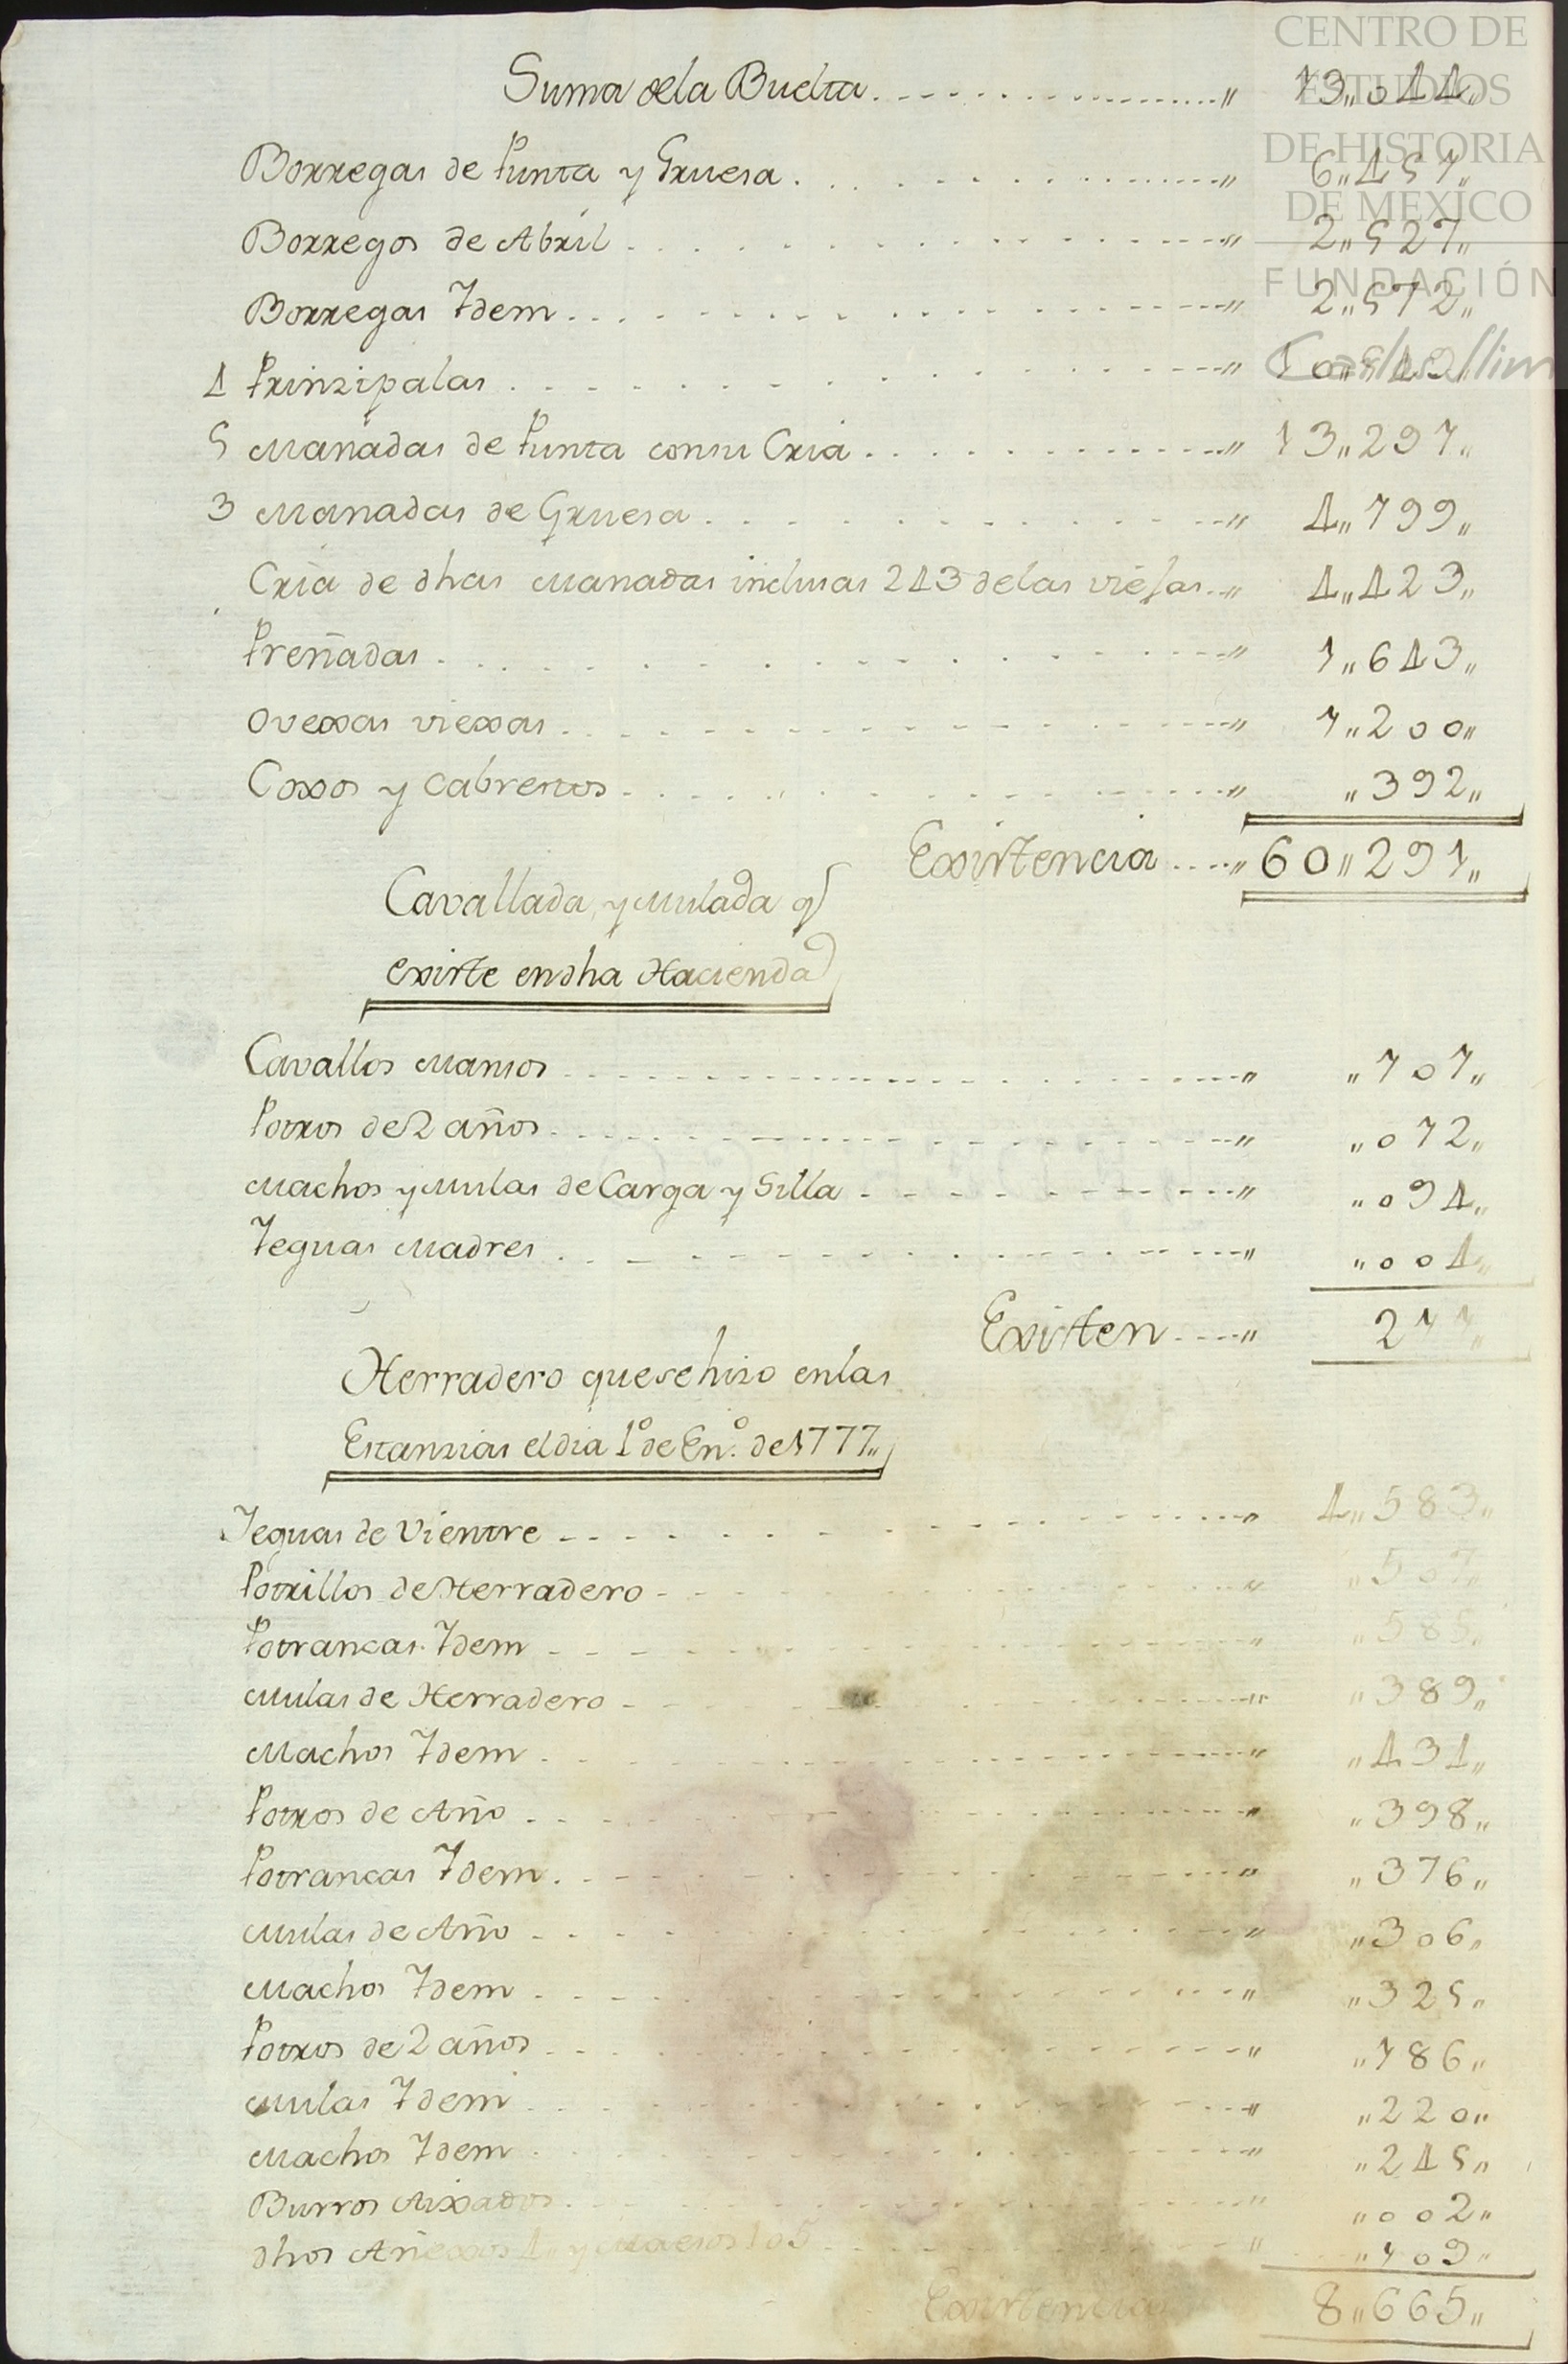 CENTRO DE
ESTUDIOS
DE HISTORIA
DE MEXICO
FUNDACIÓN
Suma dela Buelta „ 13„044„
Borregas de Punta y Gruesa „ 6„451„
Borregos de Abril „ 2„527„
Borregas Idem „ 2„572„
4 Prinzipalas „ 10„549„
5 Manadas de Punta consu Cria „ 13„291„
3 Manadas de Gruesa „ 4„199„
Cria de dhas Manadas inclusas 243 delas viejas „ 4„423„
Preñadas „ 1„643„
Ovexas viexas „ 1„200„
Coxos y Cabrestos „ „392„
Existencia „ 60„291„
Cavallada, y Mulada q
existe endha Hacienda
Cavallos Mansos „ „101„
Potros de 2 años „ „012„
Machos y Mulas de Carga y Silla „ „094„
Yeguas Madres „ „004„
Existen „ 211„
Herradero quesehizo enlas
Estanzias el dia 1º de Enº. de 1777„
Yeguas de Vientre „ 4„583„
Potrillos de Herradero „ „507„
Potrancas Idem „ „585„
Mulas de Herradero „ „389„
Machos Idem „ „434„
Potros de Año „ „398„
Potrancas Idem „ „376„
Mulas de Año „ „306„
Machos Idem „ „325„
Potros de 2 años „ „186„
Mulas Idem „ „220„
Machos Idem „ „245„
Burros Aixados „ „002„
dhos Añexos 4 y 105 „ „109„
Existencia 8„665„